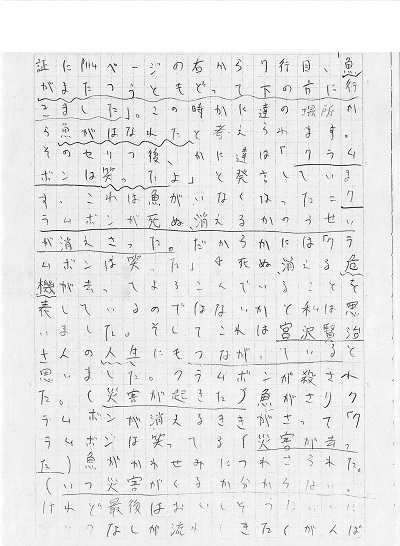 証にP114ページの右から7行目、魚
がまたつうともどって下の方に行
きました」。この時かに達の場所か
ら魚がはなれたと考えられます。
そのセリフ後、かに達は「クラム
ボンは笑ったよ」と発言していま
す、これは魚がいなくなった
ラムボンが死ぬ、消えるかのうせい
が消えさった。だからかには「クラ
ムボンは笑った」と死ぬ、消える危
機が去ってよろこんでいることを
表しているのではないかと私は思
いました。そしてこれは宮沢賢治
さんの人生にもつながっていると
思いました。クラムボンが殺され
た。(災害が起きた)魚がさりク
ラムボンが消えるききがさって「ク
ラムボンは笑ってる(災害が去っ
た)魚がかわせみにつれさられた。
(いつ災害がくるか分からない。
けれど最後はおいしそうないいに
のなしが流れてきた(がんば